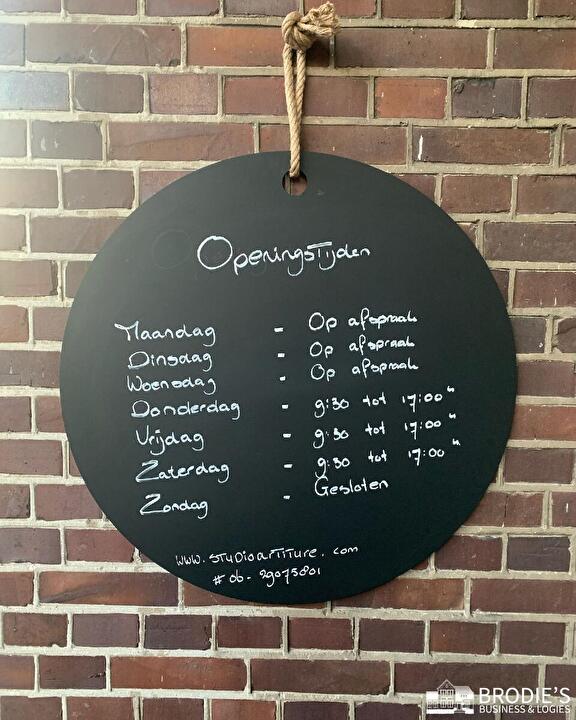 Openingstijden
Maandag - Op afspraak
Dinsdag - Op afspraak
Woensdag - Op afspraak
Donderdag - 9:30 tot 17:00 h
Vrijdag - 9:30 tot 17:00 h
Zaterdag - 9:30 tot 17:00 h
Zondag - Gesloten
www.studioartiture.com
# 06-29075801
BRODIE'S
BUSINESS & LOGIES